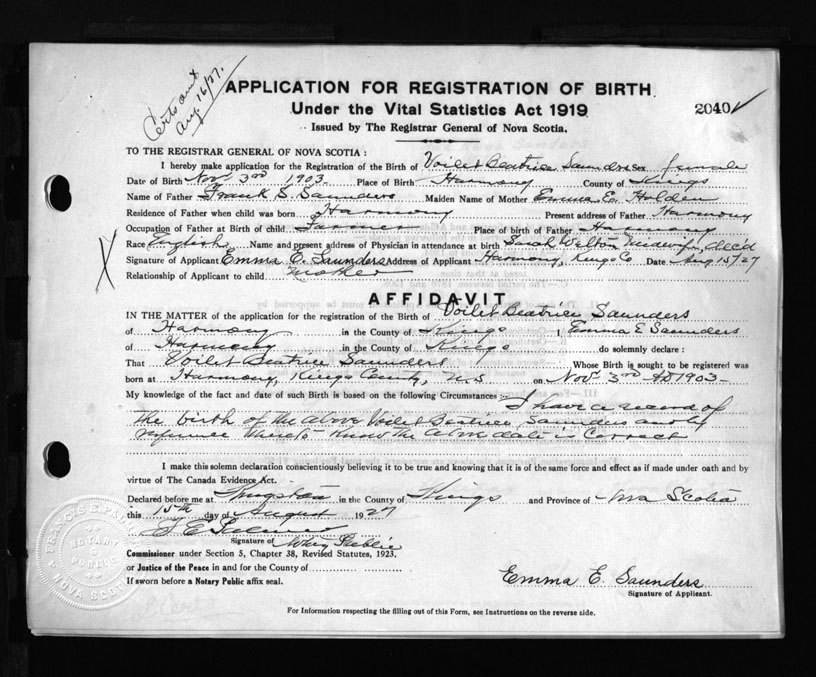 Cert sent
Aug. 16/27.
APPLICATION FOR REGISTRATION OF BIRTH
Under the Vital Statistics Act 1919
2040
Issued by The Registrar General of Nova Scotia.
TO THE REGISTRAR GENERAL OF NOVA SCOTIA :
I hereby make application for the Registration of the Birth of Voilet Beatrice Saunders sex female
Date of Birth Nov. 3rd 1903. Place of Birth Harmony County of Kings
Name of Father Frank S. Saunders Maiden Name of Mother Emma E. Holden
Residence of Father when child was born Harmony Present address of Father Harmony
Occupation of Father at Birth of child Farmer Place of birth of Father Harmony
Race English Name and present address of Physician in attendance at birth Sarah Welton Midwife, dec'd
Signature of Applicant Emma E. Saunders Address of Applicant Harmony, Kings Co Date Aug 15/27
Relationship of Applicant to child mother
AFFIDAVIT
IN THE MATTER of the application for the registration of the Birth of Voilet Beatrice Saunders
of Harmony in the County of Kings I, Emma E Saunders
of Harmony in the County of Kings do solemnly declare :
That Voilet Beatrice Saunders Whose Birth is sought to be registered was
born at Harmony, Kings County, N.S on Nov 3rd AD 1903-
My knowledge of the fact and date of such Birth is based on the following Circumstances :- I have a record of
the birth of the above Voilet Beatrice Saunders and by
refrence thereto know the above date is Correct
I make this solemn declaration conscientiously believing it to be true and knowing that it is of the same force and effect as if made under oath and by
virtue of The Canada Evidence Act.
Declared before me at Kingston in the County of Kings and Province of Nova Scotia
this 15th day of August 1927
Signature of Notary Public
Commissioner under Section 5, Chapter 38, Revised Statutes, 1923,
or Justice of the Peace in and for the County of
If sworn before a Notary Public affix seal.
Emma E. Saunders
Signature of Applicant.
For Information respecting the filling out of this Form, see Instructions on the reverse side.
FRANCIS E. NOTARY PUBLIC NOVA SCOTIA